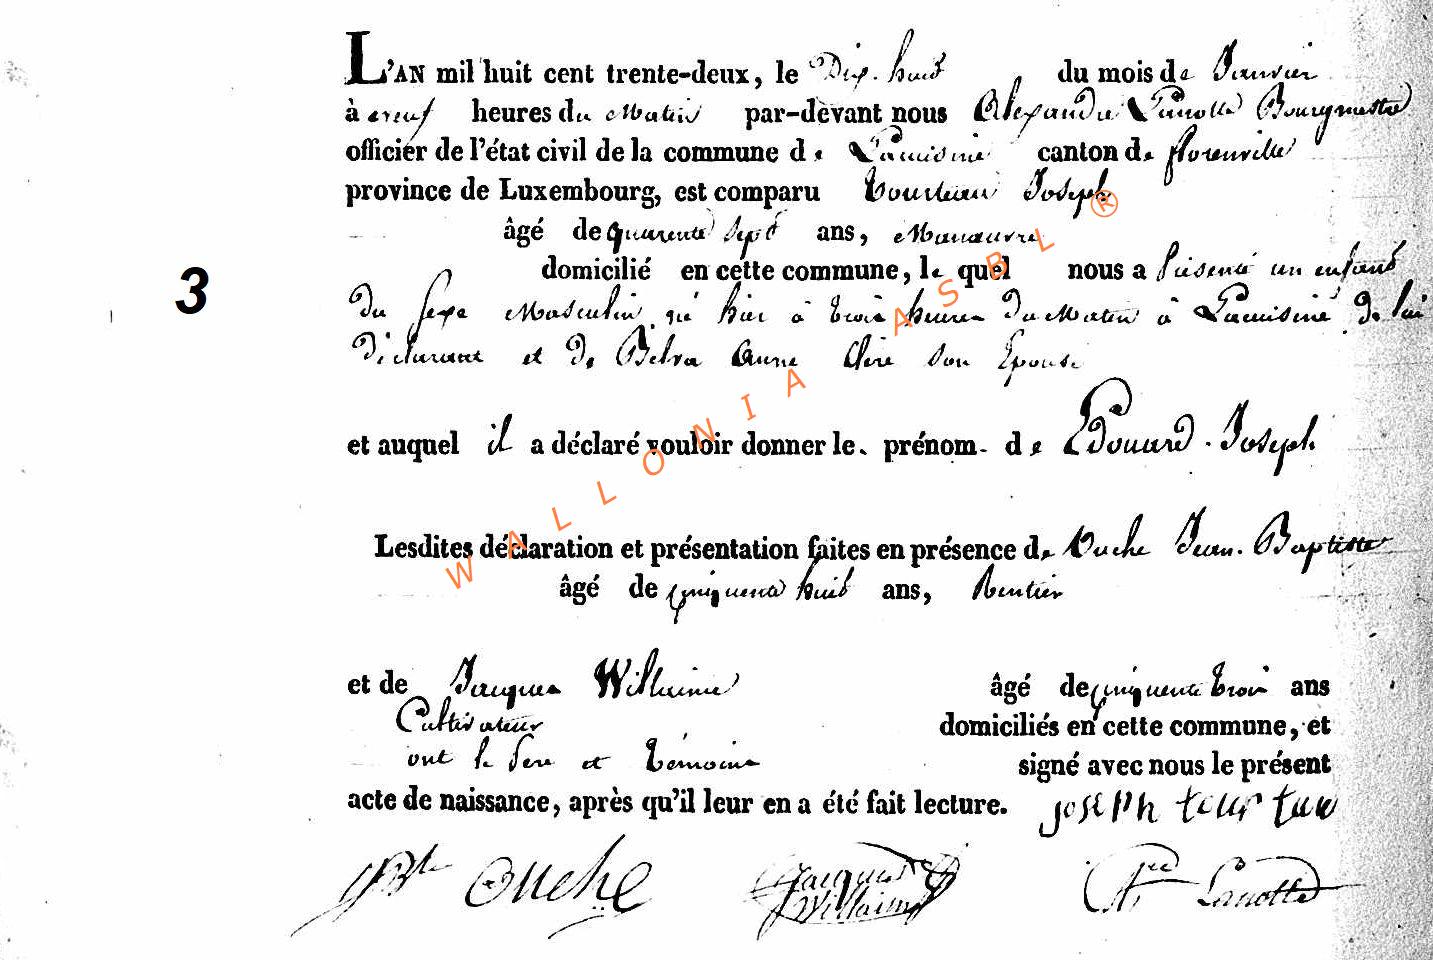 L'AN mil huit cent trente-deux, le Dix-huit du mois de Janvier
à neuf heures du Matin par-devant nous Alexandre Lanotte Bourgmestre
officier de l'état civil de la commune de Lacuisine canton de florenville
province de Luxembourg, est comparu Tourteau Joseph
âgé de quarente sept ans, Manœuvre
domicilié en cette commune, le quel nous a présenté un enfant
du sexe Masculin né hier à trois heures du Matin à Lacuisine de lui
déclarant et de Anne son Epouse
3
et auquel il a déclaré vouloir donner le prénom de Edouard Joseph
Lesdites déclaration et présentation faites en présence de Ouche Jean-Baptiste
âgé de cinquente huit ans, Rentier
et de Jacques Willaime âgé de cinquente trois ans
Cultivateur domiciliés en cette commune, et
ont le Pere et témoins signé avec nous le présent
acte de naissance, après qu'il leur en a été fait lecture. joseph tourtau
JBte Ouche Jacques Willaime Alre Lanotte
WALLONIA ASBL ®